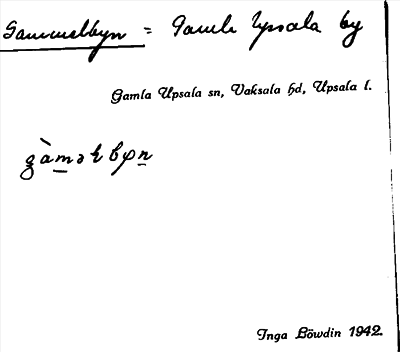 Gammelbyn = Gamla Upsala by
Gamla Upsala sn, Vaksala hd, Upsala l.
Inga Löwdin 1942.